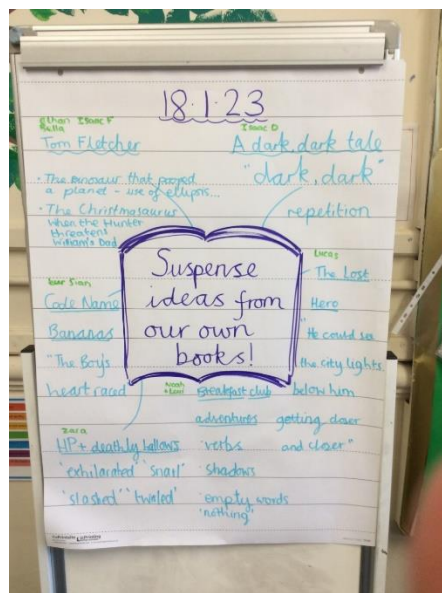 18.1.23
Isaac F
Isaac D
Tom Fletcher
A dark, dark tale
"dark, dark"
repetition
• The Dinosaur that pooped
a planet - use of ellipsis...
• The Christmasaurus
when the Hunter
threatens
William's Dad
Suspense
ideas from
our own
books!
Lucas
The Lost
Hero
"He could see
the city lights
below him
getting closer
and closer"
Sian
Code Name
Bananas
"The Boy's
heart raced
Noah
Breakfast club
adventures
verbs
shadows
empty words
'nothing'
Zara
HP + deathly hallows
'exhilarated' 'snarl'
'slashed' 'twirled'